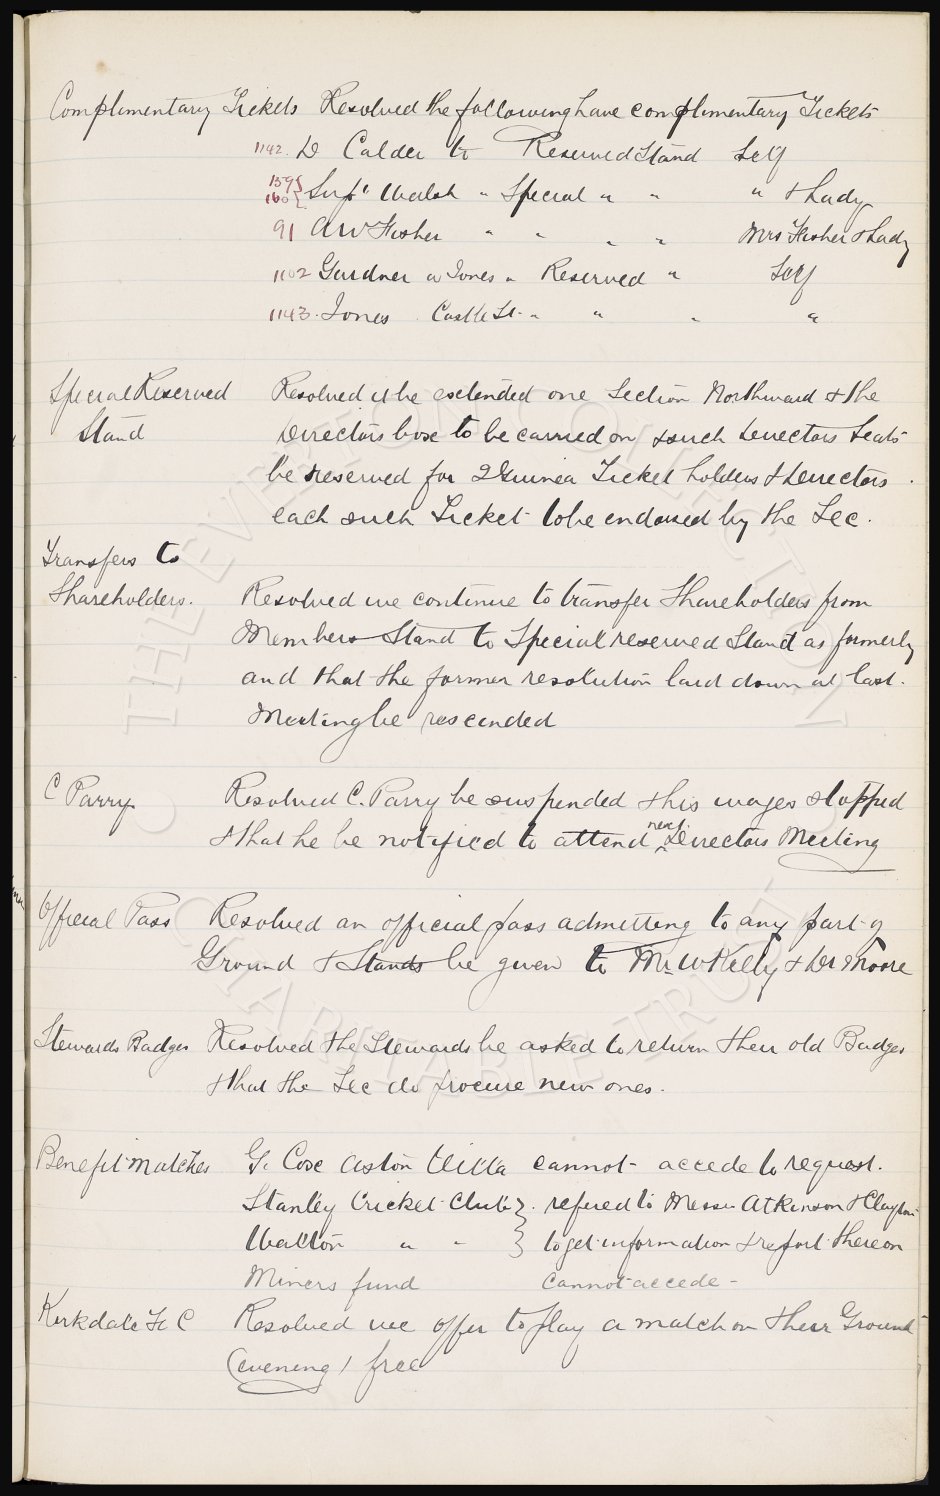 Complimentary Tickets Resolved the following have complimentary Tickets
1142. D Calder to Reserved Stand Self
159 } 160 } Supt Walsh " Special " " " & Lady
91 A W Fisher " " " " Mrs Fisher & Lady
1102 Gardner Jones " Reserved " Self
1143. Jones Castle St. " " " "
Special Reserved Resolved it be extended one Section Northward & the
Stand Directors box to be carried on & such Directors Seats
be reserved for 2 Guinea Ticket holders & Directors
each such Ticket to be endorsed by the Sec.
Transfers to
Shareholders. Resolved we continue to transfer Shareholders from
Members Stand to Special reserved Stand as formerly
and that the former resolution laid down at last.
Meeting be rescinded
C Parry. Resolved C. Parry be suspended & his wages stopped
& that he be notified to attend next Directors Meeting
Official Pass Resolved an official pass admitting to any part of
Ground & Stands be given to Mr W Kelly & Dr Moore
Stewards Badges Resolved the Stewards be asked to return their old Badges
& that the Sec do procure new ones.
Benefit Matches G. Cox Aston Villa cannot accede to request.
Stanley Cricket Club } . refered to Messrs Atkinson & Clayton
Walton " " } to get information & report thereon
Miners fund cannot accede -
Kirkdale F C Resolved we offer to play a match on their Ground
(evening) free
THE EVERTON COLLECTION
CHARITABLE TRUST